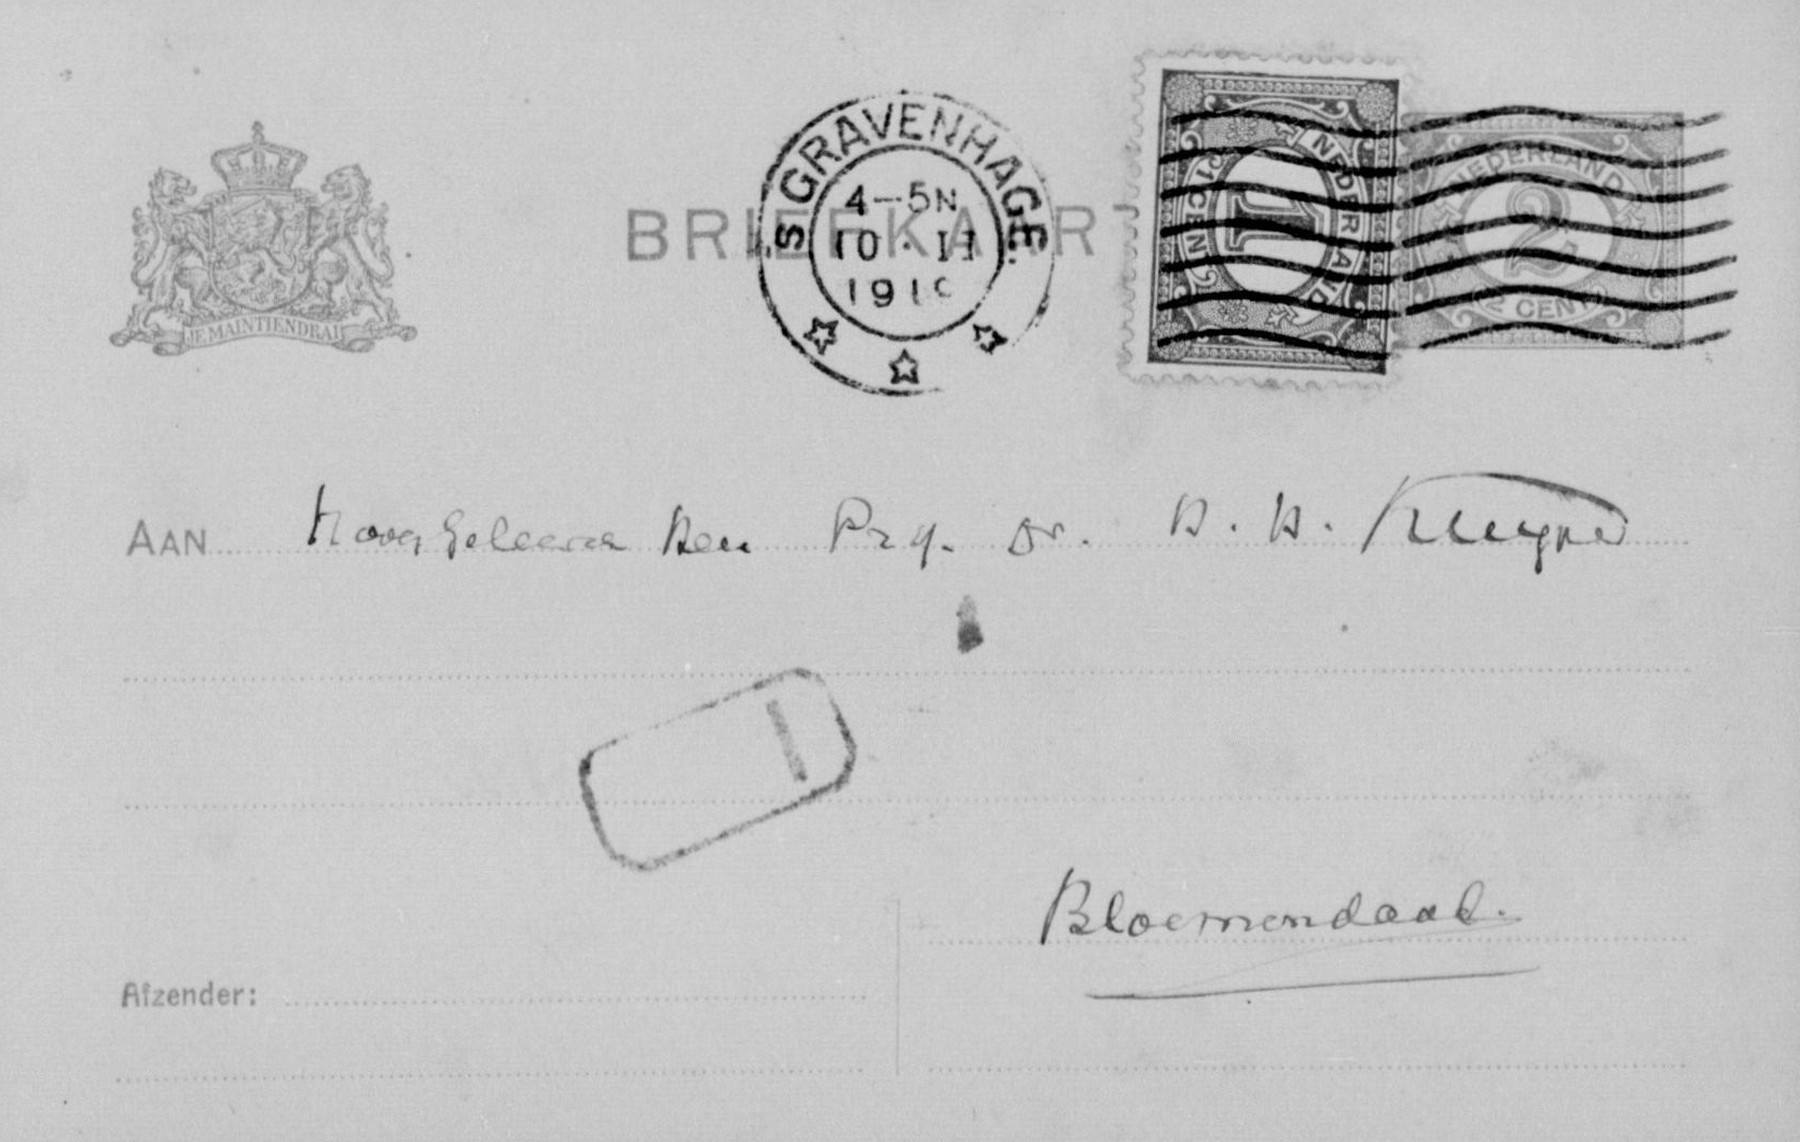 'S GRAVENHAGE.
4–5N
10·II
191
BRIEFKAART
1 CENT
NEDERLAND
1
NEDERLAND
2
2 CENT
JE MAINTIENDRAI
AAN Hooggeleerde Heer Prof. Dr. H. H. Kuyper
Bloemendaal.
Afzender: